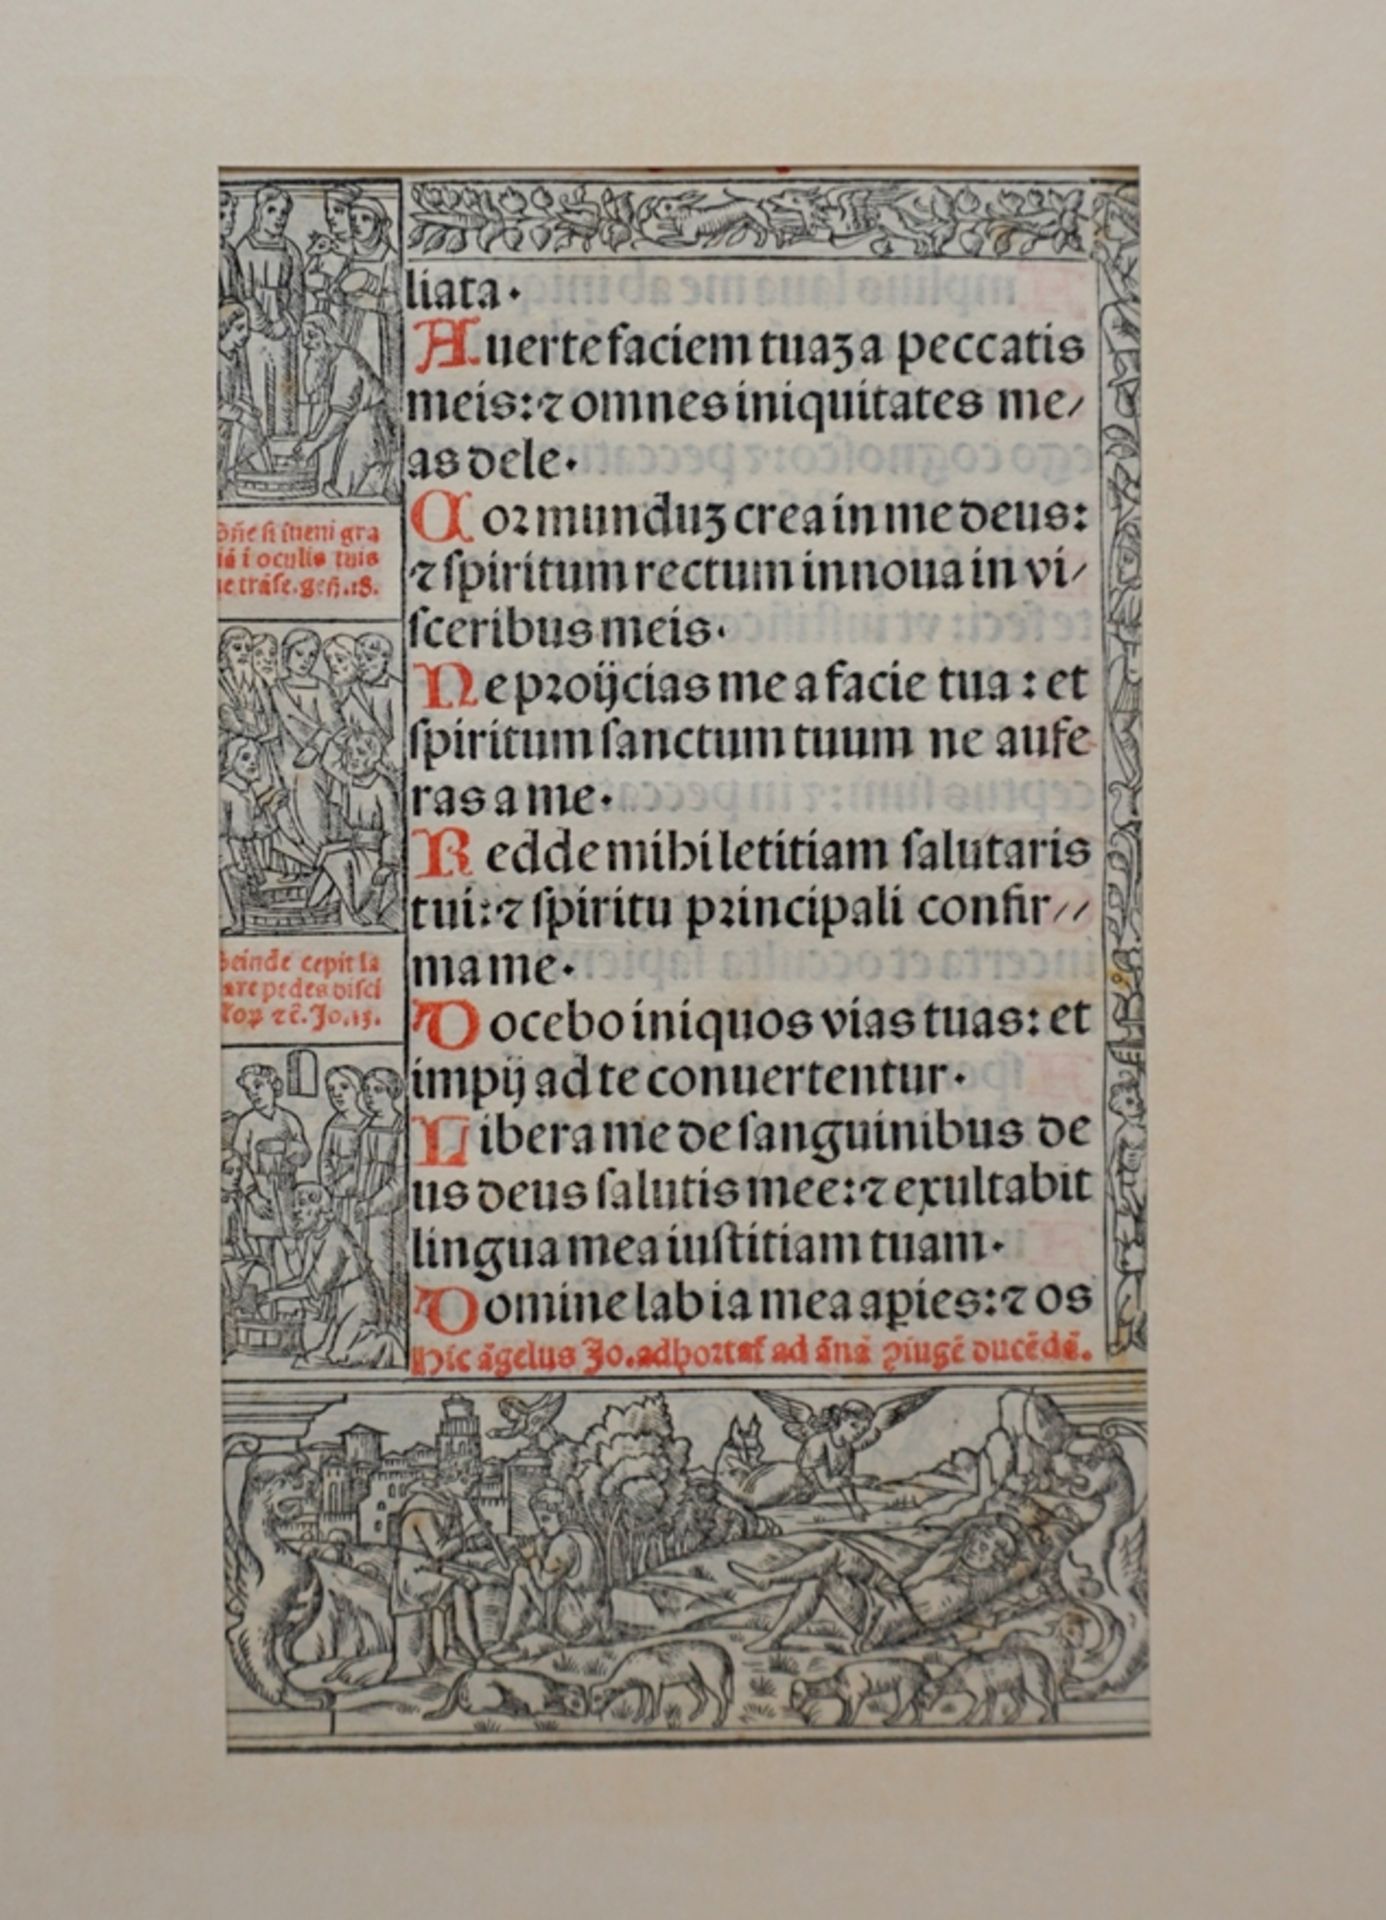 liata.
Auerte faciem tuaʒ a peccatis
meis: ⁊ omnes iniquitates me/
as dele.
Cor munduʒ crea in me deus:
⁊ ſpiritum rectum innoua in vi/
ſceribus meis.
Ne proijcias me a facie tua: et
ſpiritum ſanctum tuum ne aufe
ras a me.
Redde mihi letitiam ſalutaris
tui: ⁊ ſpiritu principali confir//
ma me.
Docebo iniquos vias tuas: et
impij ad te conuertentur.
Libera me de ſanguinibus de
us deus ſalutis mee: ⁊ exultabit
lingua mea iuſtitiam tuam.
Domine labia mea aꝑies: ⁊ os
Hic āgelus Jo. adhortat᷑ ad ānā ꝓiugē ducēdā.
dn̄e ſi īueni gra
iā ī oculis tuis
ne trāſe. geñ. 18.
deinde cepit la
are pedes diſci
ꝛc̄. Jo. 13.